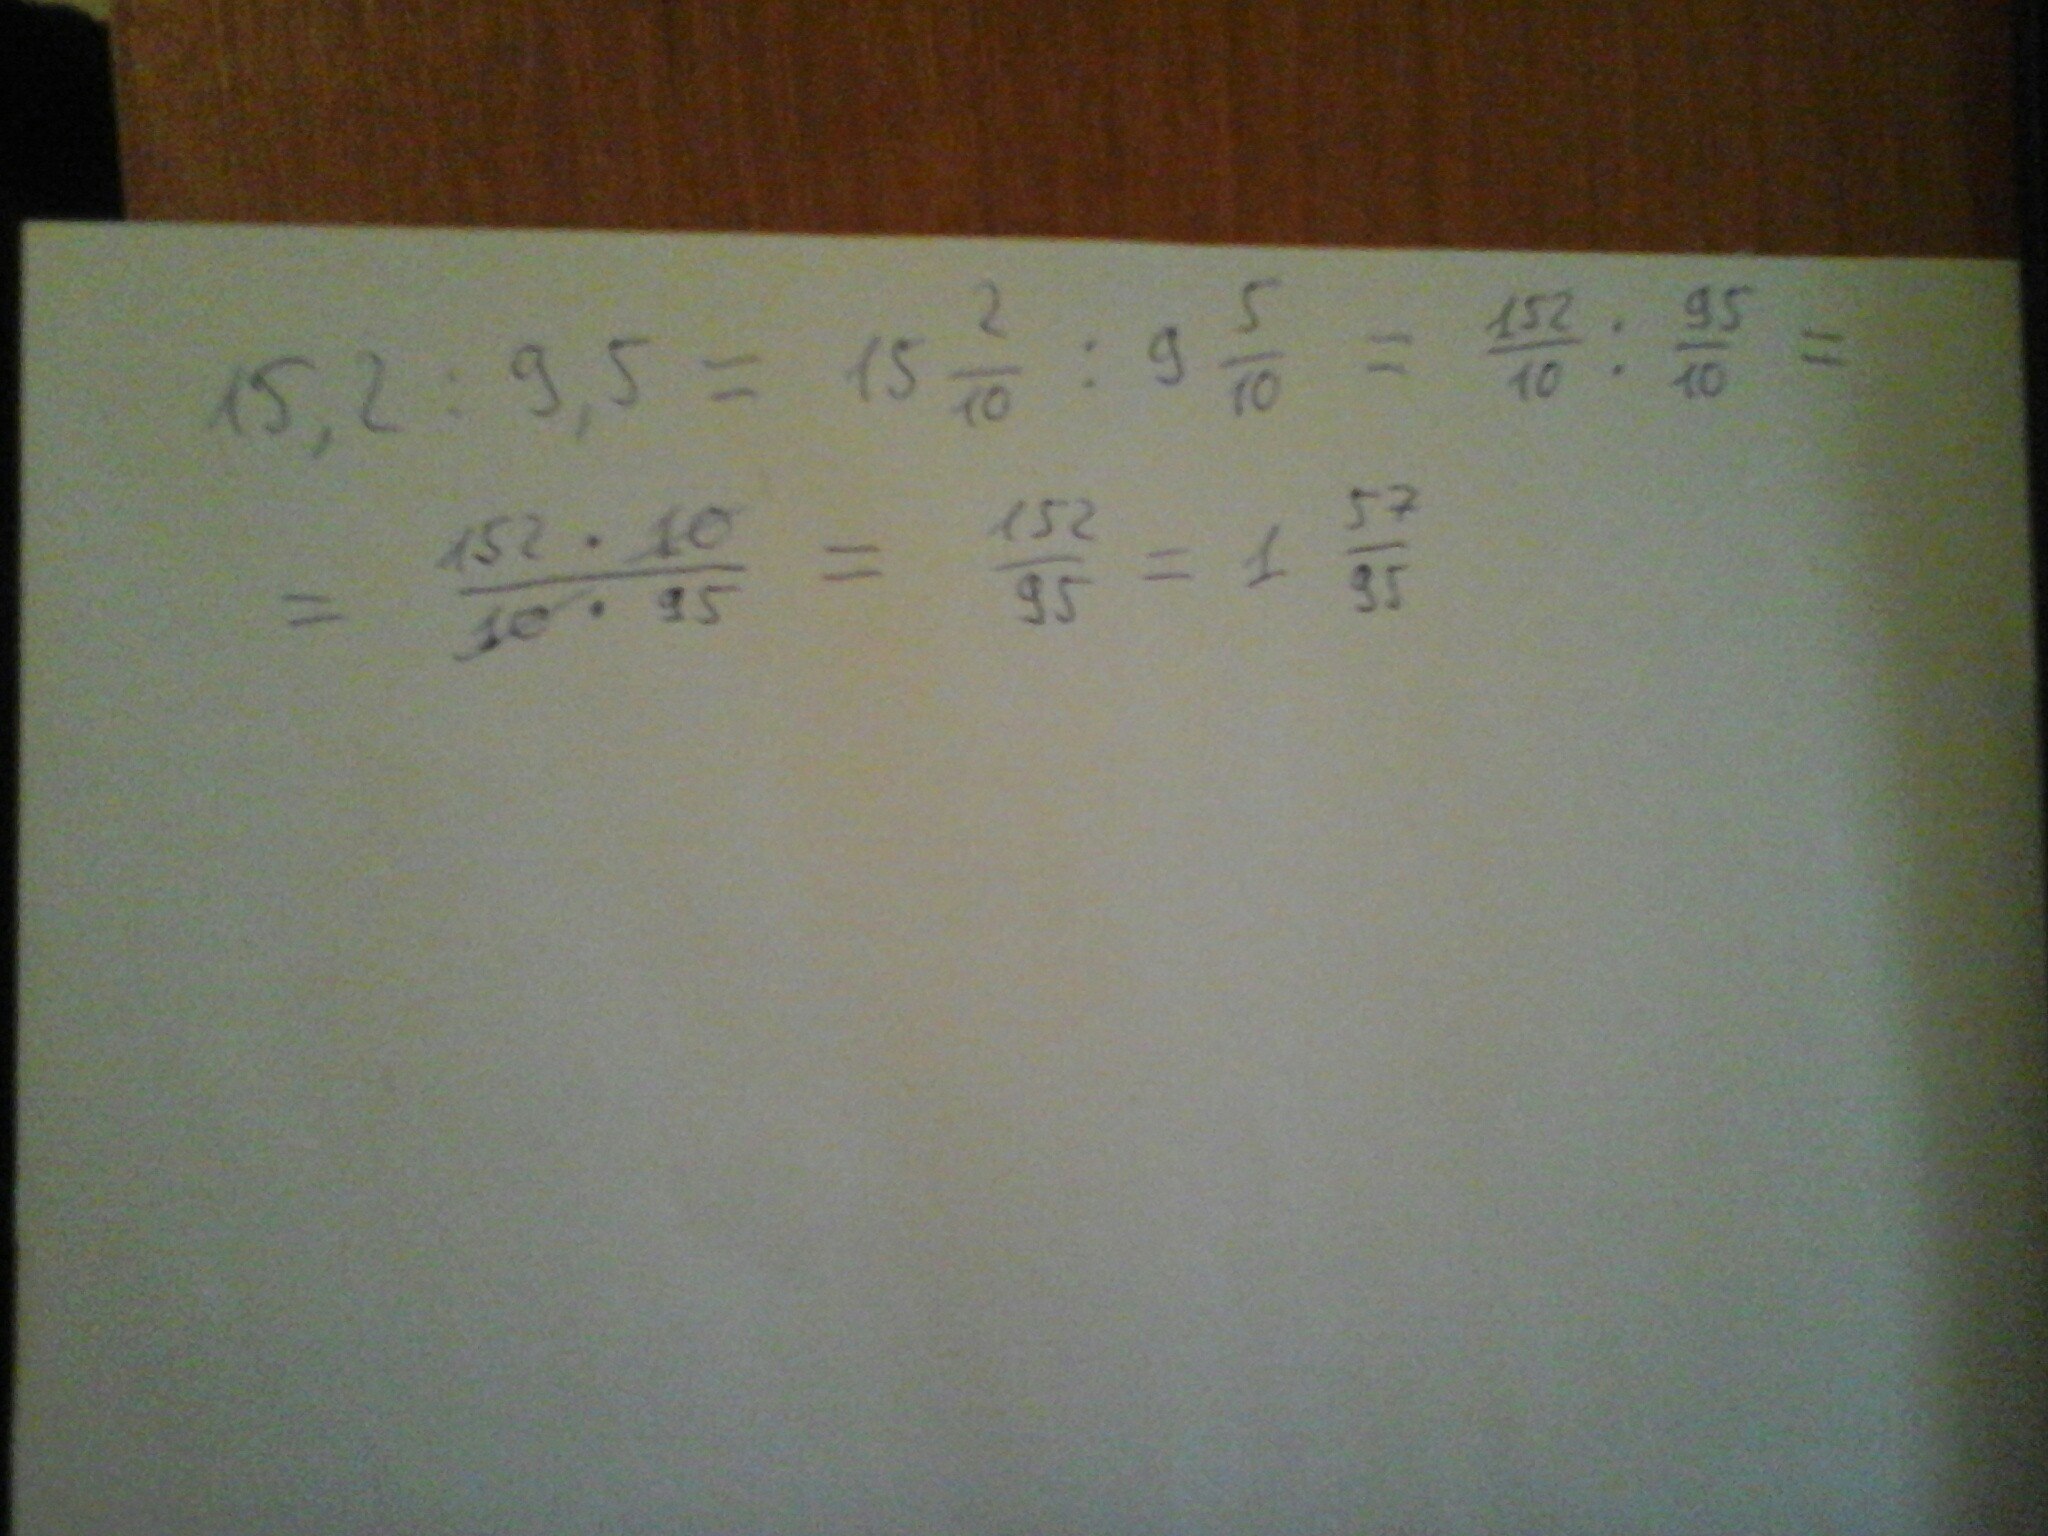 15,2 : 9,5 = 15 2/10 : 9 5/10 = 152/10 : 95/10 =
= 152 · 10/10 · 95 = 152/95 = 1 57/95